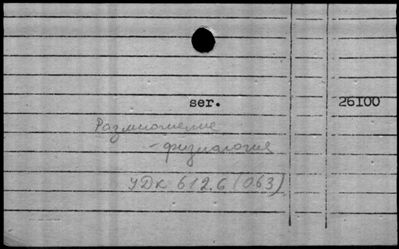 ser. 26100
Размножение
- физиология
УДК 612.6(063)